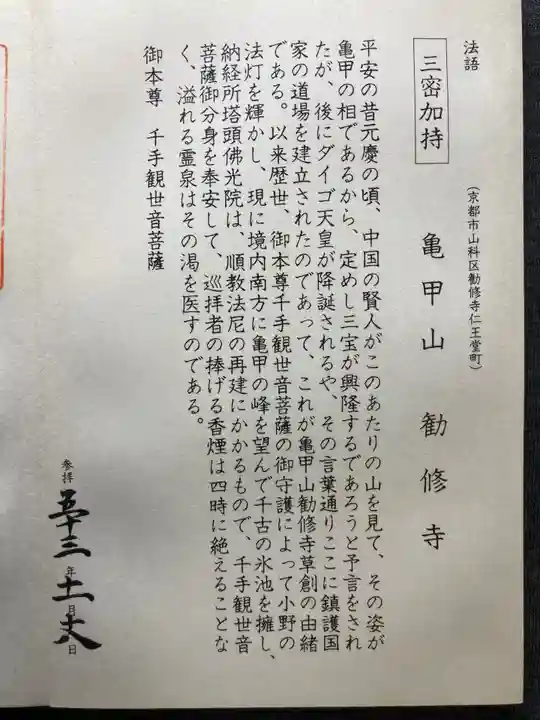 法語
三密加持
(京都市山科区勧修寺仁王堂町)
亀甲山 勧修寺
平安の昔元慶の頃、中国の賢人がこのあたりの山を見て、その姿が
亀甲の相であるから、定めし三宝が興隆するであろうと予言をされ
たが、後にダイゴ天皇が降誕されるや、その言葉通りここに鎮護国
家の道場を建立されたのであって、これが亀甲山勧修寺草創の由緒
である。以来歴世、御本尊千手観世音菩薩の御守護によって小野の
法灯を輝かし、現に境内南方に亀甲の峰を望んで千古の氷池を擁し、
納経所塔頭佛光院は、順教法尼の再建にかかるもので、千手観世音
菩薩御分身を奉安して、巡拝者の捧げる香煙は四時に絶えることな
く、溢れる霊泉はその渇を医すのである。
御本尊 千手観世音菩薩
参拝 五十三年十一月 日